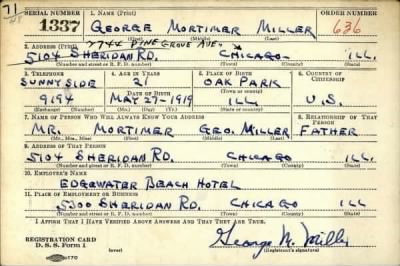 71
SERIAL NUMBER 1. NAME (Print) ORDER NUMBER
1337 GEORGE MORTIMER MILLER 636
(First) (Middle) (Last)
2744 PINE GROVE AVE
2. ADDRESS (Print)
5104 SHERIDAN RD. CHICAGO ILL.
(Number and street or R. F. D. number) (Town) (County) (State)
3. TELEPHONE 4. AGE IN YEARS 5. PLACE OF BIRTH 6. COUNTRY OF CITIZENSHIP
SUNNYSIDE 21 OAK PARK
DATE OF BIRTH (Town or county)
9154 MAY-27-1919 ILL U.S.
(Exchange) (Number) (Mo.) (Day) (Yr.) (State or country)
7. NAME OF PERSON WHO WILL ALWAYS KNOW YOUR ADDRESS 8. RELATIONSHIP OF THAT PERSON
MR. MORTIMER GEO. MILLER FATHER
(Mr., Mrs., Miss) (First) (Middle) (Last)
9. ADDRESS OF THAT PERSON
5104 SHERIDAN RD. CHICAGO ILL.
(Number and street or R. F. D. number) (Town) (County) (State)
10. EMPLOYER'S NAME
EDGEWATER BEACH HOTEL
11. PLACE OF EMPLOYMENT OR BUSINESS
5300 SHERIDAN RD. CHICAGO ILL
(Number and street or R. F. D. number) (Town) (County) (State)
I AFFIRM THAT I HAVE VERIFIED ABOVE ANSWERS AND THAT THEY ARE TRUE.
REGISTRATION CARD
D. S. S. Form 1 George M. Miller
(over) (Registrant's signature)